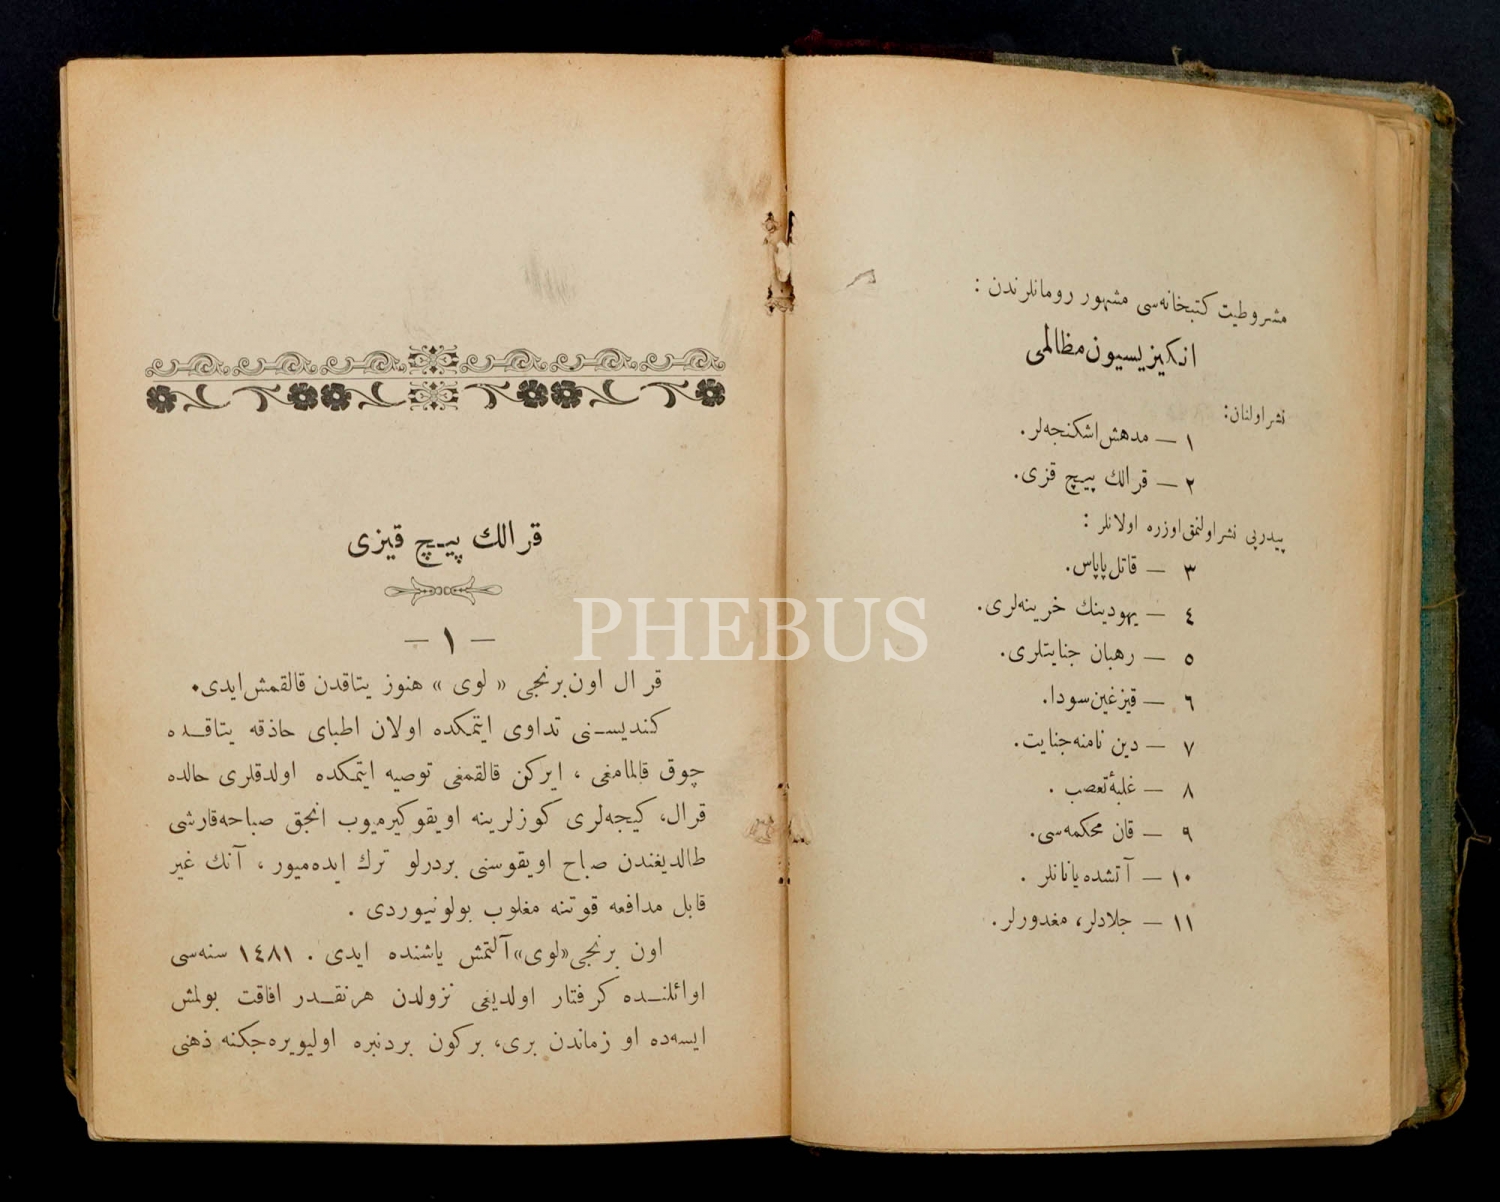 مشروطیت كتبخانه‌سی مشهور رومانلرندن :
انكیزیسیون مظالمی
نشر اولنان:
١ — مدهش اشكنجه‌لر.
٢ — قرالك پیچ قزی.
پیدرپی نشر اولنمق اوزره اولانلر :
٣ — قاتل پاپاس.
٤ — یهودینك خزینه‌لری.
٥ — رهبان جنایتلری.
٦ — قیزغین سودا.
٧ — دین نامنه جنایت.
٨ — غلبهٔ تعصب .
٩ — قان محكمه‌سی.
١٠ — آتشده یانانلر .
١١ — جلادلر، مغدورلر.
قرالك پیچ قیزی
— ١ —
قرال اون برنجی « لوی » هنوز یتاقدن قالقمش ایدی.
كندیسنی تداوی ایتمكده اولان اطبای حاذقه یتاقده
چوق قالمامغی ، ایركن قالقمغی توصیه ایتمكده اولدقلری حالده
قرال، كیجه‌لری كوزلرینه اویقو كیرمیوب انجق صباحه قارشی
طالدیغندن صباح اویقوسنی بردرلو ترك ایده‌میور ، آنك غیر
قابل مدافعه قوتنه مغلوب بولونیوردی .
اون برنجی «لوی» آلتمش یاشنده ایدی . ١٤٨١ سنه‌سی
اوائلنده كرفتار اولدیغی نزولدن هرنقدر افاقت بولمش
ایسه‌ده او زماندن بری، بركون بردنبره اولیویره‌جكنه ذهنی
PHEBUS